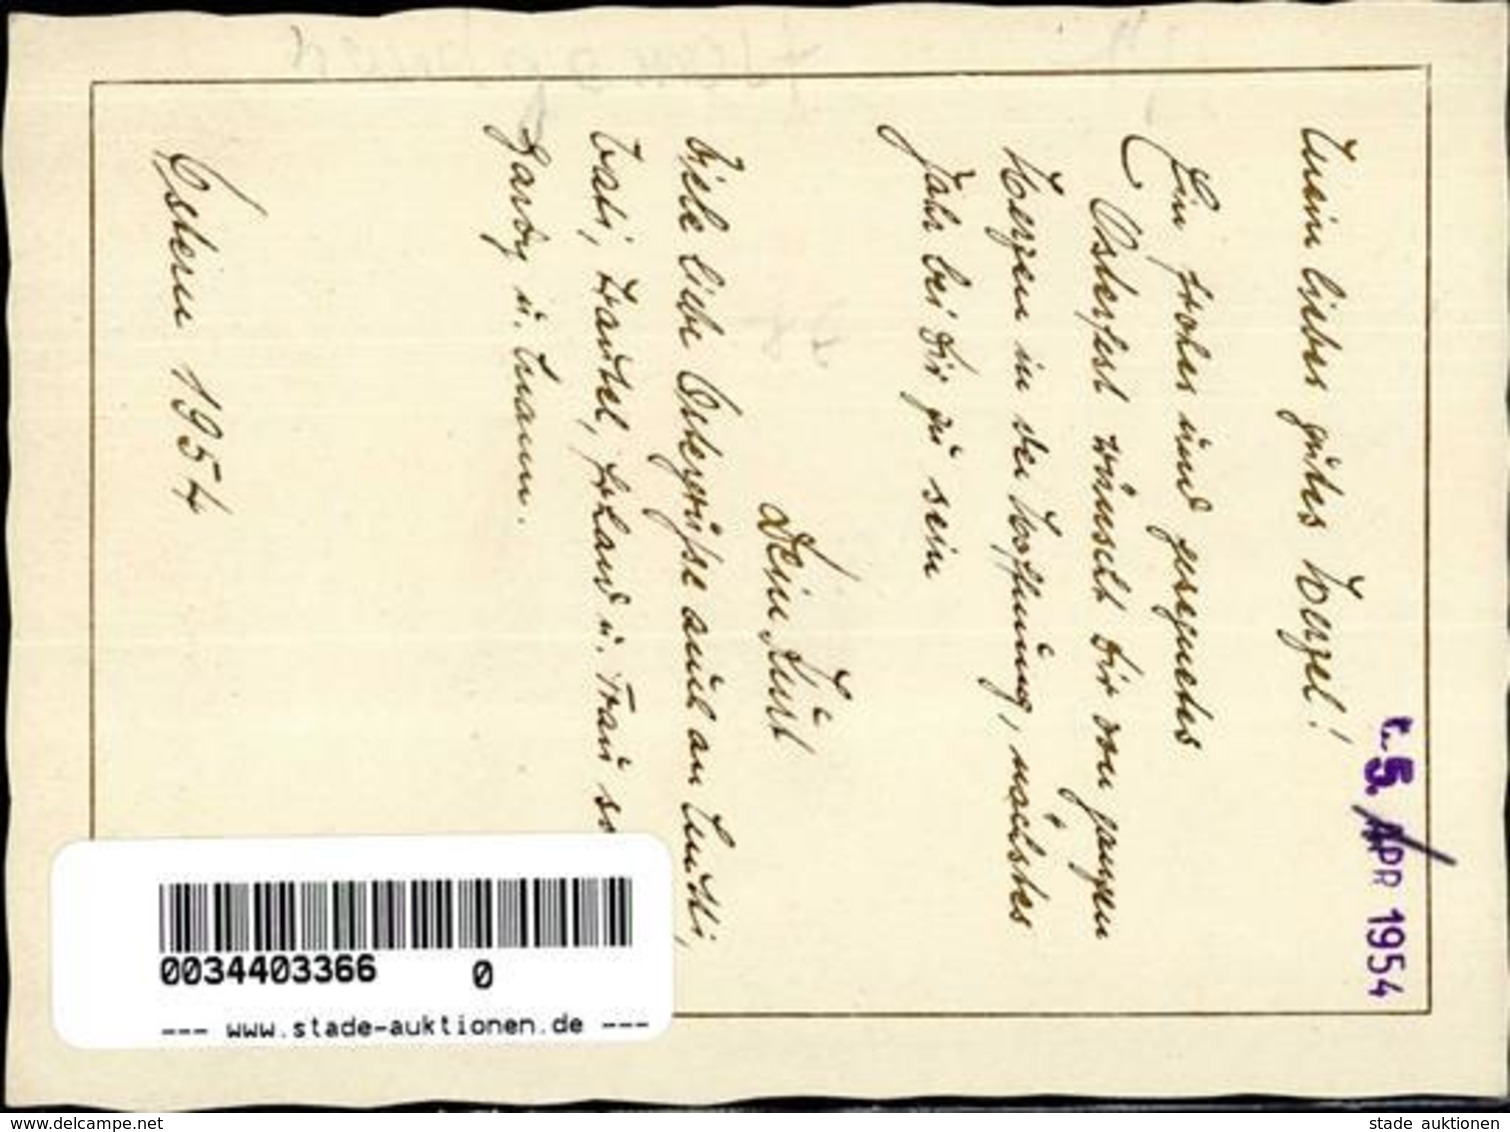 5. APR 1954
Mein liebes gutes Herzel!
Ein frohes und gesegnetes
Osterfest wünscht Dir von ganzen
Herzen in der Hoffnung, nächstes
Jahr bei Dir zu sein
Dein Kurt
Viele liebe Ostergrüße auch an Mutti,
Vati, Traudel, u. Frau
Hardy u. Mann.
Ostern 1954
0034403366 0
--- www.stade-auktionen.de ---
www.delcampe.net
stade auktionen